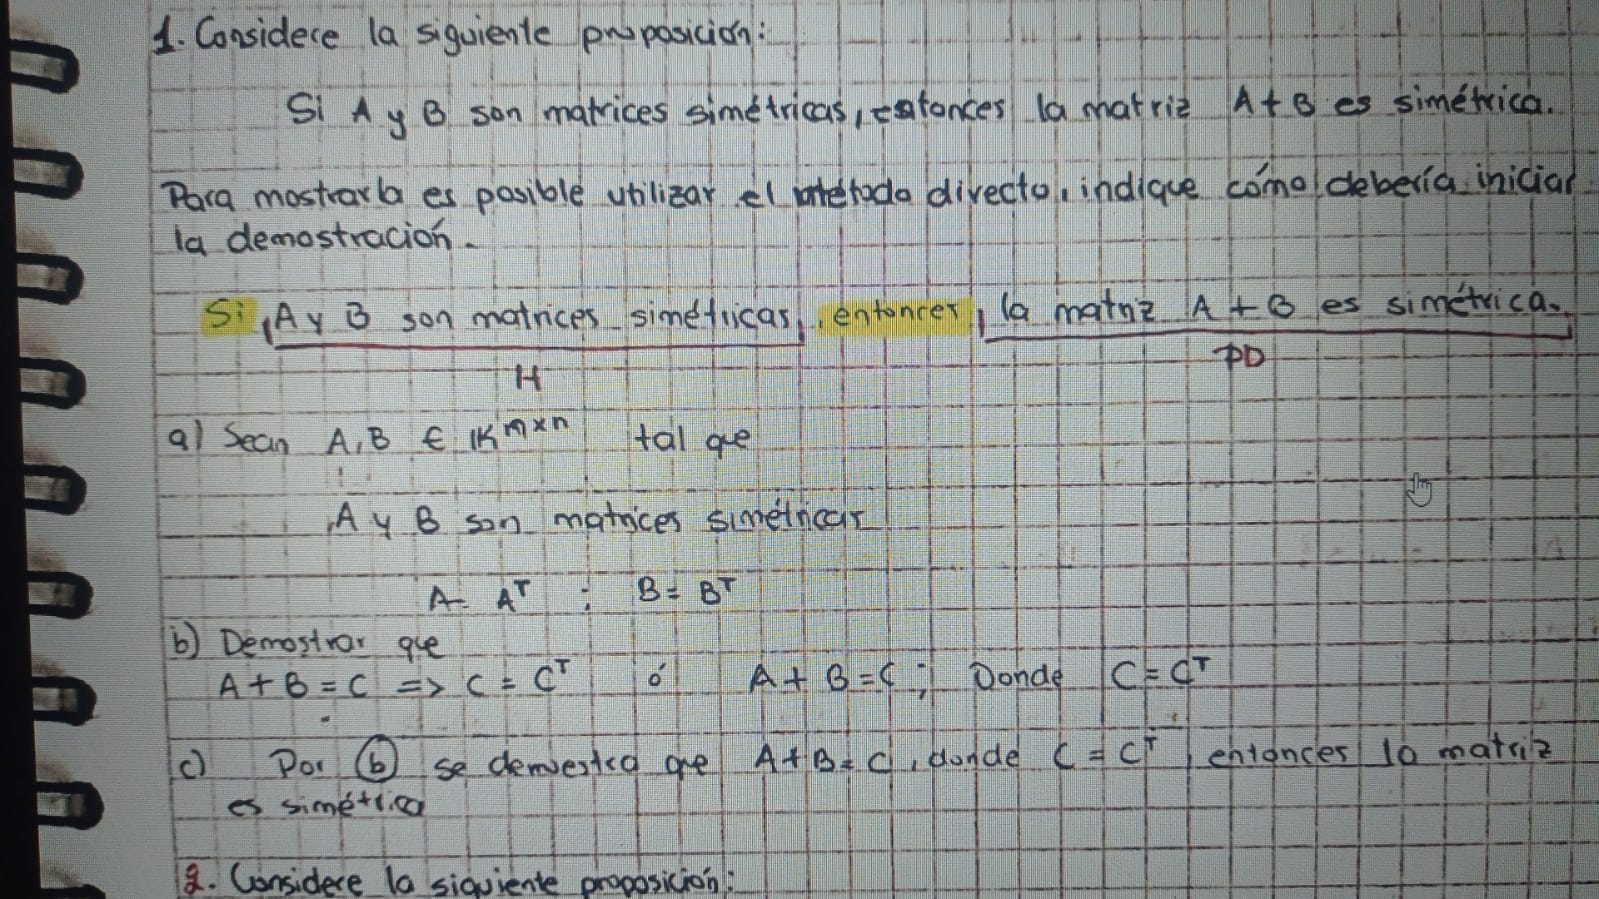 1. Considere la siguiente proposición:
Si A y B son matrices simétricas, entonces la matriz A + B es simétrica.
Para mostrarla es posible utilizar el método directo, indique cómo debería iniciar
la demostración.
Si A y B son matrices simétricas, entonces la matriz A + B es simétrica.
H
PD
a) Sean A, B ∈ 𝕂^{m×n} tal que
A y B son matrices simétricas
A = A^T ; B = B^T
b) Demostrar que
A + B = C => C = C^T ó A + B = C ; Donde C = C^T
c) Por (b) se demuestra que A + B = C, donde C = C^T, entonces la matriz
es simétrica
2. Considere la siguiente proposición: